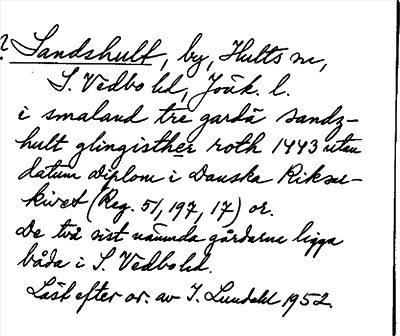 ? Sandshult, by, Hults sn,
S. Vedbo hd, Jönk. l.
i smaland tre gardä sandz-
hult glingisther roth 1443 utan
datum diplom i Danska Riksar-
kivet (Reg. 51, 197, 17) or.
De två sist nämnda gårdarne ligga
båda i S. Vedbo hd.
Läst efter or. av I. Lundahl 1952.